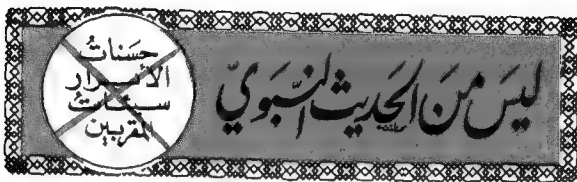 ليس من الحديث النبوي
حسنات
الأبرار
سيئات
المقربين